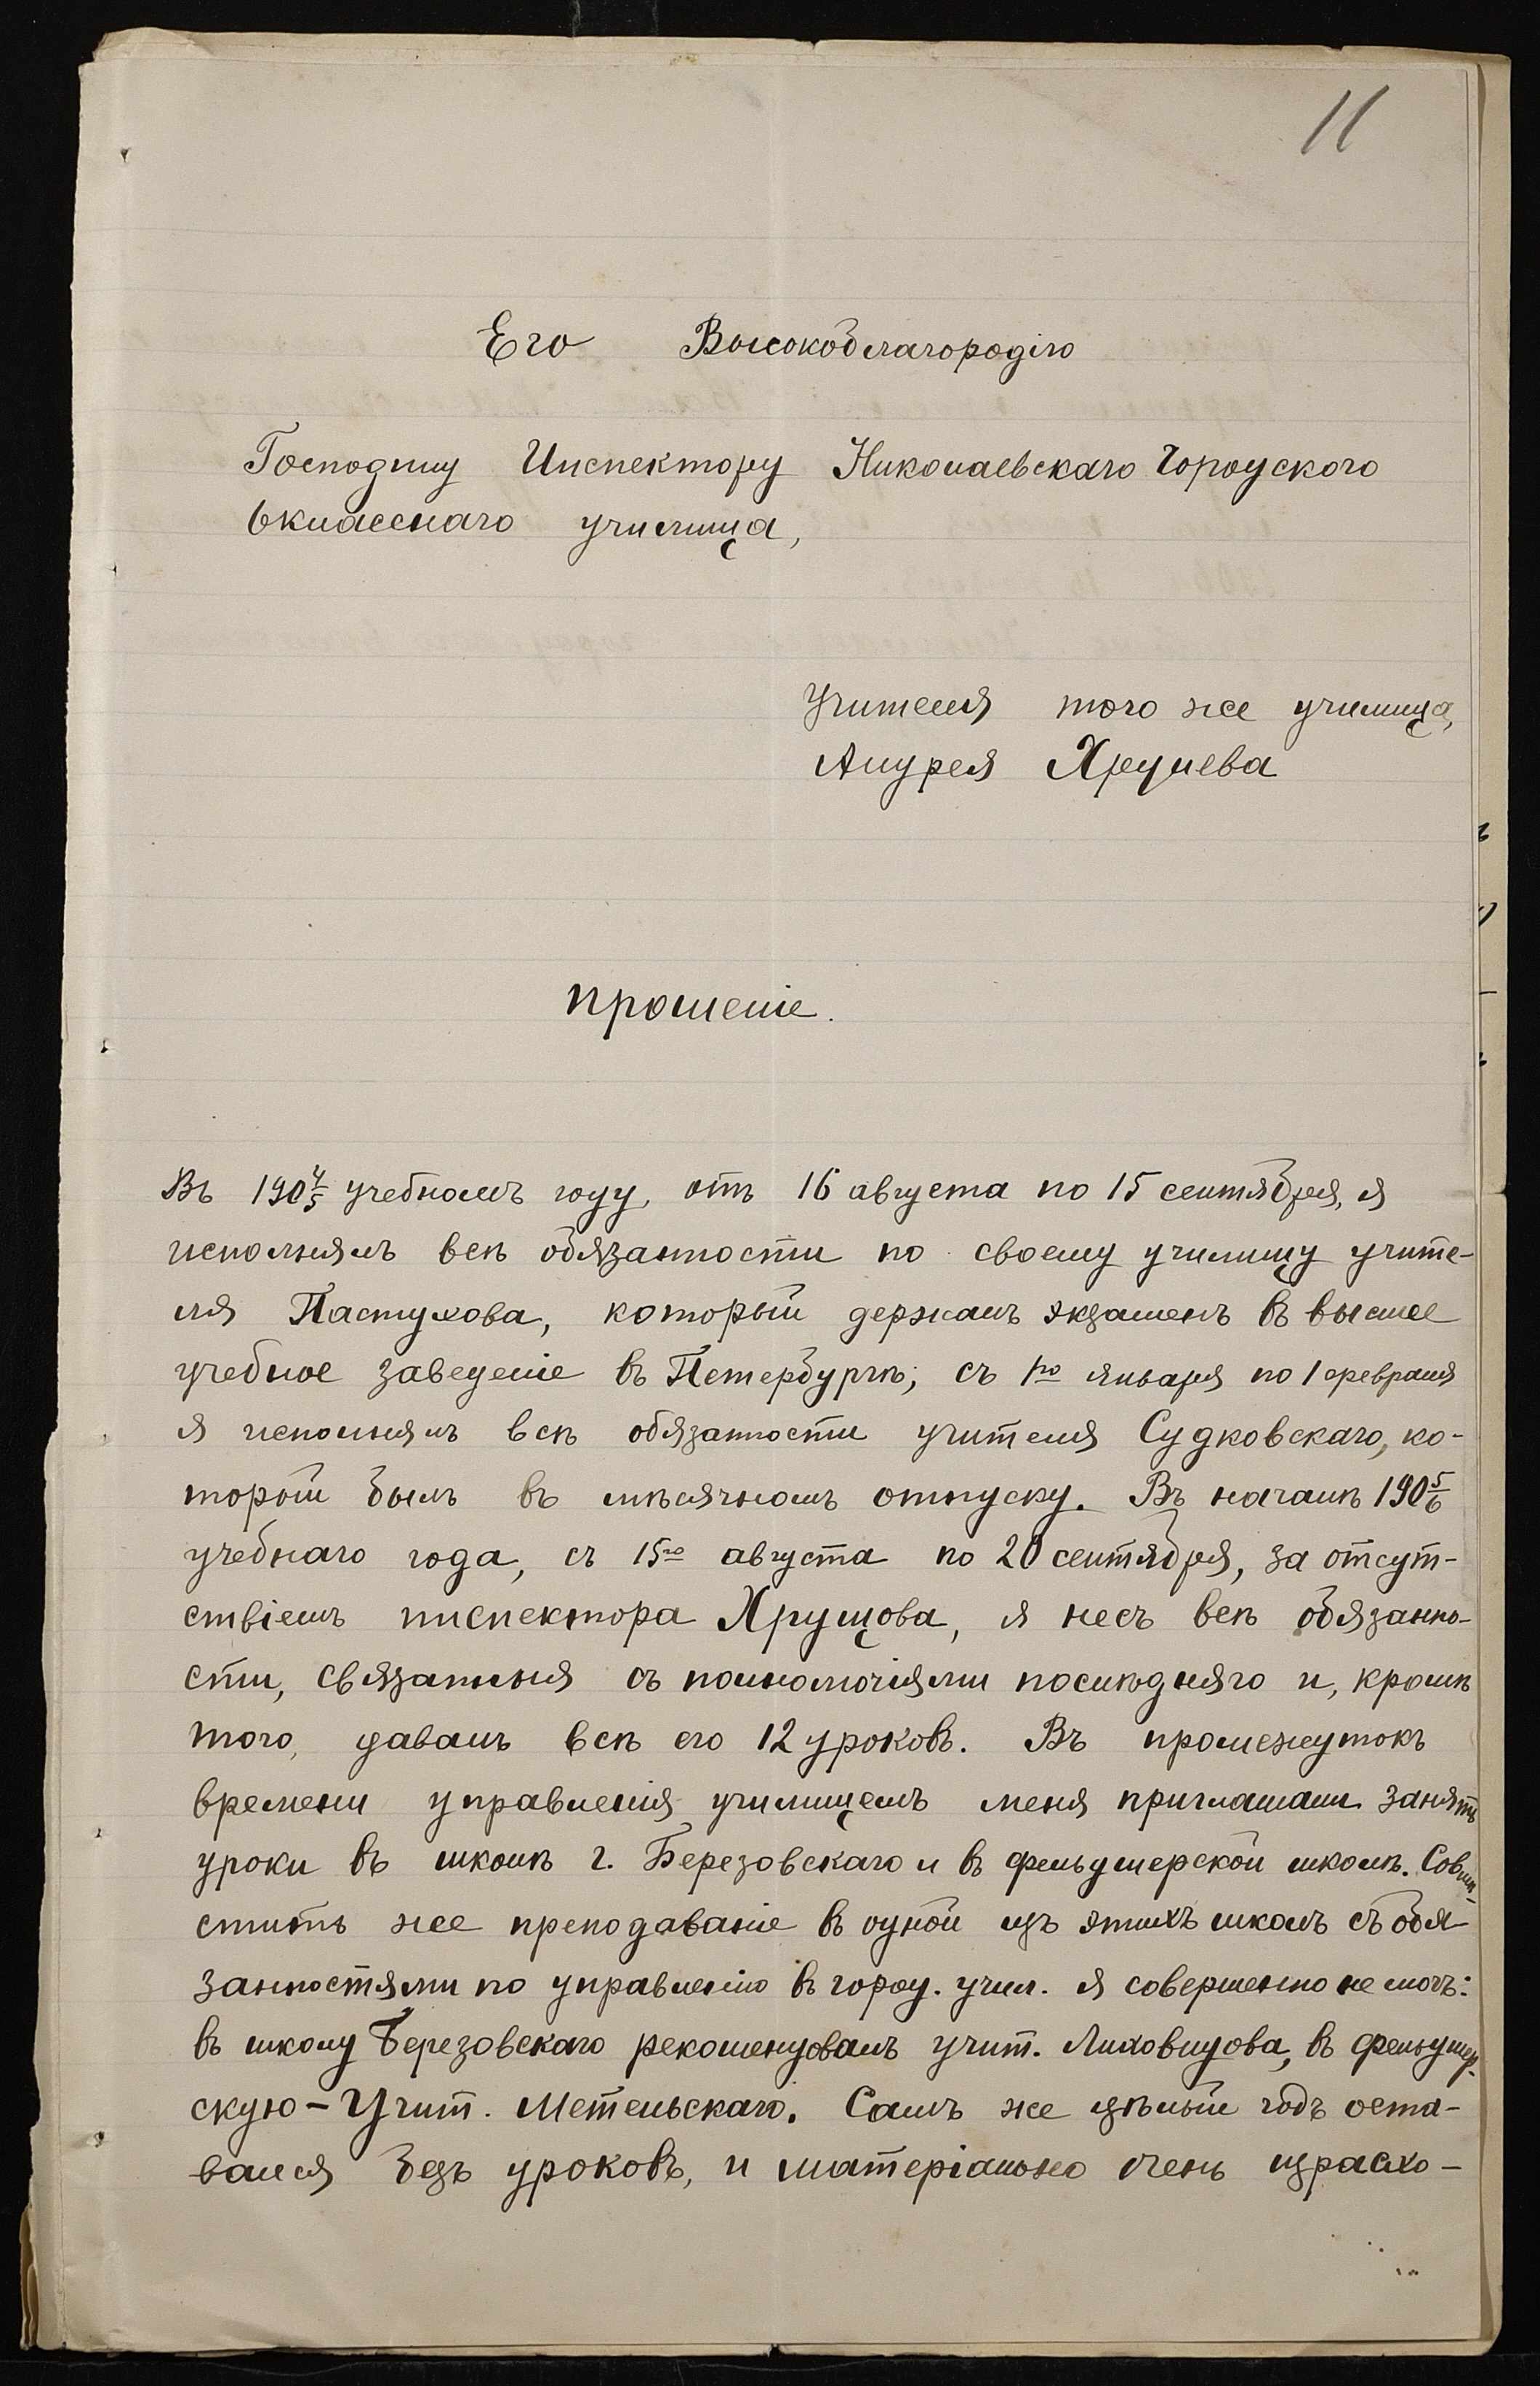 11
Его Высокоблагородію
Господину Инспектору Николаевскаго Городского
6классного училища,
Учителя того же училища,
Андрея
прошеніе.
Въ 190 4/5 учебномъ году, отъ 16 августа по 15 сентября, я
исполнялъ всѣ обязанности по своему училищу учите-
ля Пастухова, который держалъ экзаменъ въ высшее
учебное заведеніе въ Петербургѣ; съ 1го января по 1 февраля
я исполнялъ всѣ обязанности учителя Судковскаго, ко-
торый былъ въ мѣсячномъ отпуску. Въ началѣ 190 5/6
учебнаго года, съ 15го августа по 20 сентября, за отсут-
ствіемъ инспектора Хрущова, я несъ всѣ обязанно-
сти, связанныя съ полномочіями послѣдняго и, кромѣ
того, давалъ всѣ его 12 уроковъ. Въ промежутокъ
времени управленія училищемъ меня приглашали занять
уроки въ школѣ г. Березовскаго и въ фельдшерской школѣ. Совмѣ-
стить же преподаваніе въ одной изъ этихъ школъ съ обя-
занностями по управленію въ город. учил. я совершенно не могъ:
въ школу Березовскаго рекомендовалъ учит. Лиховидова, въ фельдшер-
скую – Учит. Метельскаго. Самъ же цѣлый годъ оста-
вался безъ уроковъ, и матеріально очень израсхо-